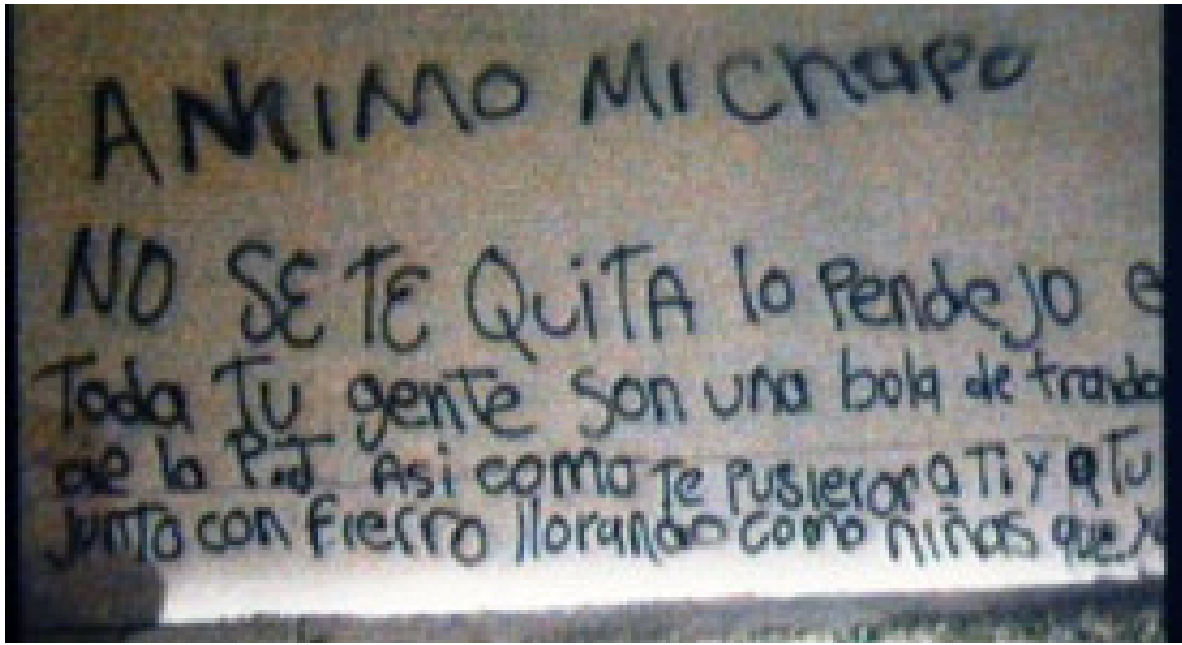 ANIMO MI Chapo
NO SE TE QUiTA lo Pendejo e
Toda Tu gente son una bola de
de la P.J Asi como te pusieron a Ti y a Tu
junto con fierro llorando como niñas que